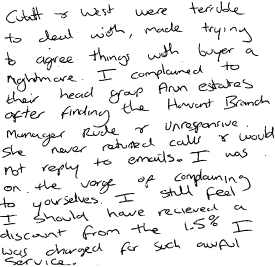 Cubitt & West were terrible
to deal with, made trying
to agree things with buyer a
nightmare. I complained to
their head group Arun estates
after finding the Havant Branch
Manager Rude & unresponsive.
She never returned calls & would
not reply to emails. I was
on the verge of complaining
to yourselves. I still feel
I should have recieved a
discount from the 1.5% I
was charged for such awful
service.